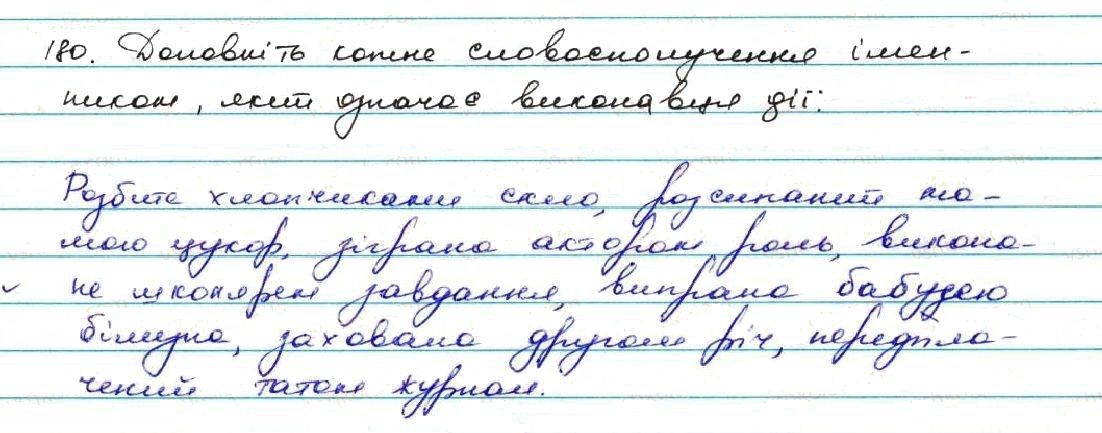 180. Доповніть кожне словосполучення імен-
ником, який означає виконавця дії:
Розбите хлопчиками скло, розсипаний ма-
мою цукор, зіграна актором роль, викона-
не школярем завдання, випрана бабусею
білизна, захована другом річ, передпла-
чений татом журнал.